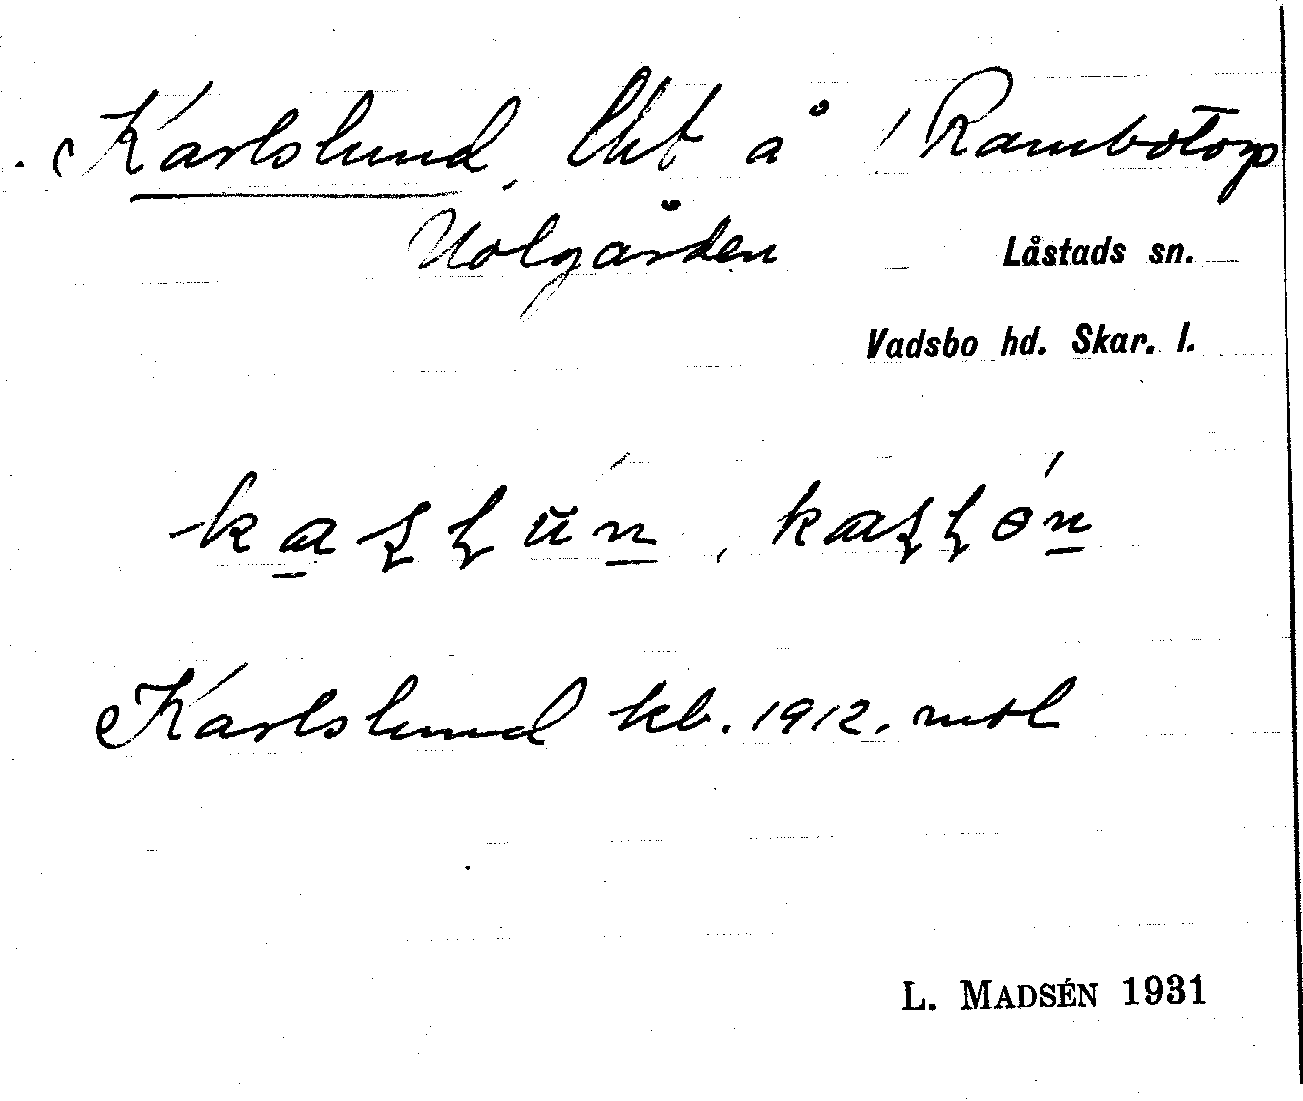 Karlslund, lht å Rambotorp
Nolgården Låstads sn.
Vadsbo hd. Skar. l.
Karlslund kb. 1912. mtl
L. MADSÉN 1931